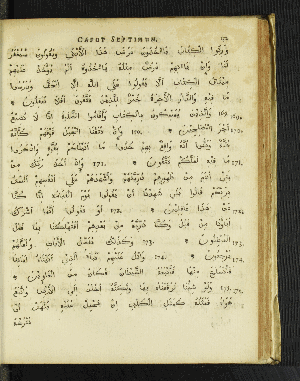 CAPUT SEPTIMUM.
ورثوا الكتاب ياخذون عرض هذا الأدنى ويقولون سيغفر
لنا وإن ياتهم عرض مثله ياخذوه ألم يوخذ عليهم
ميثاق الكتاب أن لا يقولوا على الله إلا الحق ودرسوا
ما فيه والدار الآخرة خير للذين يتقون أفلا تعقلون *
169. والذين يمسكون بالكتاب وأقاموا الصلوة إنا لا نضيع
أجر المصلحين * 170. وإذ نتقنا الجبل فوقهم كأنه
ظلة وظنوا أنه واقع بهم خذوا ما آتيناكم بقوة واذكروا
ما فيه لعلكم تتقون * 171. وإذ أخذ ربك من
بني آدم من ظهورهم ذريتهم وأشهدهم على أنفسهم ألست
بربكم قالوا بلى شهدنا أن تقولوا يوم القيمة إنا كنا
عن هذا غافلين * 172. أو تقولوا إنما أشرك
آباونا من قبل وكنا ذرية من بعدهم أفتهلكنا بما فعل
المبطلون * 173. وكذلك نفصل الآيات ولعلهم
يرجعون * 174. واتل عليهم نبأ الذي آتيناه آياتنا
فانسلخ منها فأتبعه الشيطان فكان من الغاوين *
175. ولو شينا لرفعناه بها ولكنه أخلد إلى الأرض واتبع
هواه فمثله كمثل الكلب إن تحمل عليه يلهث أو
تتركه